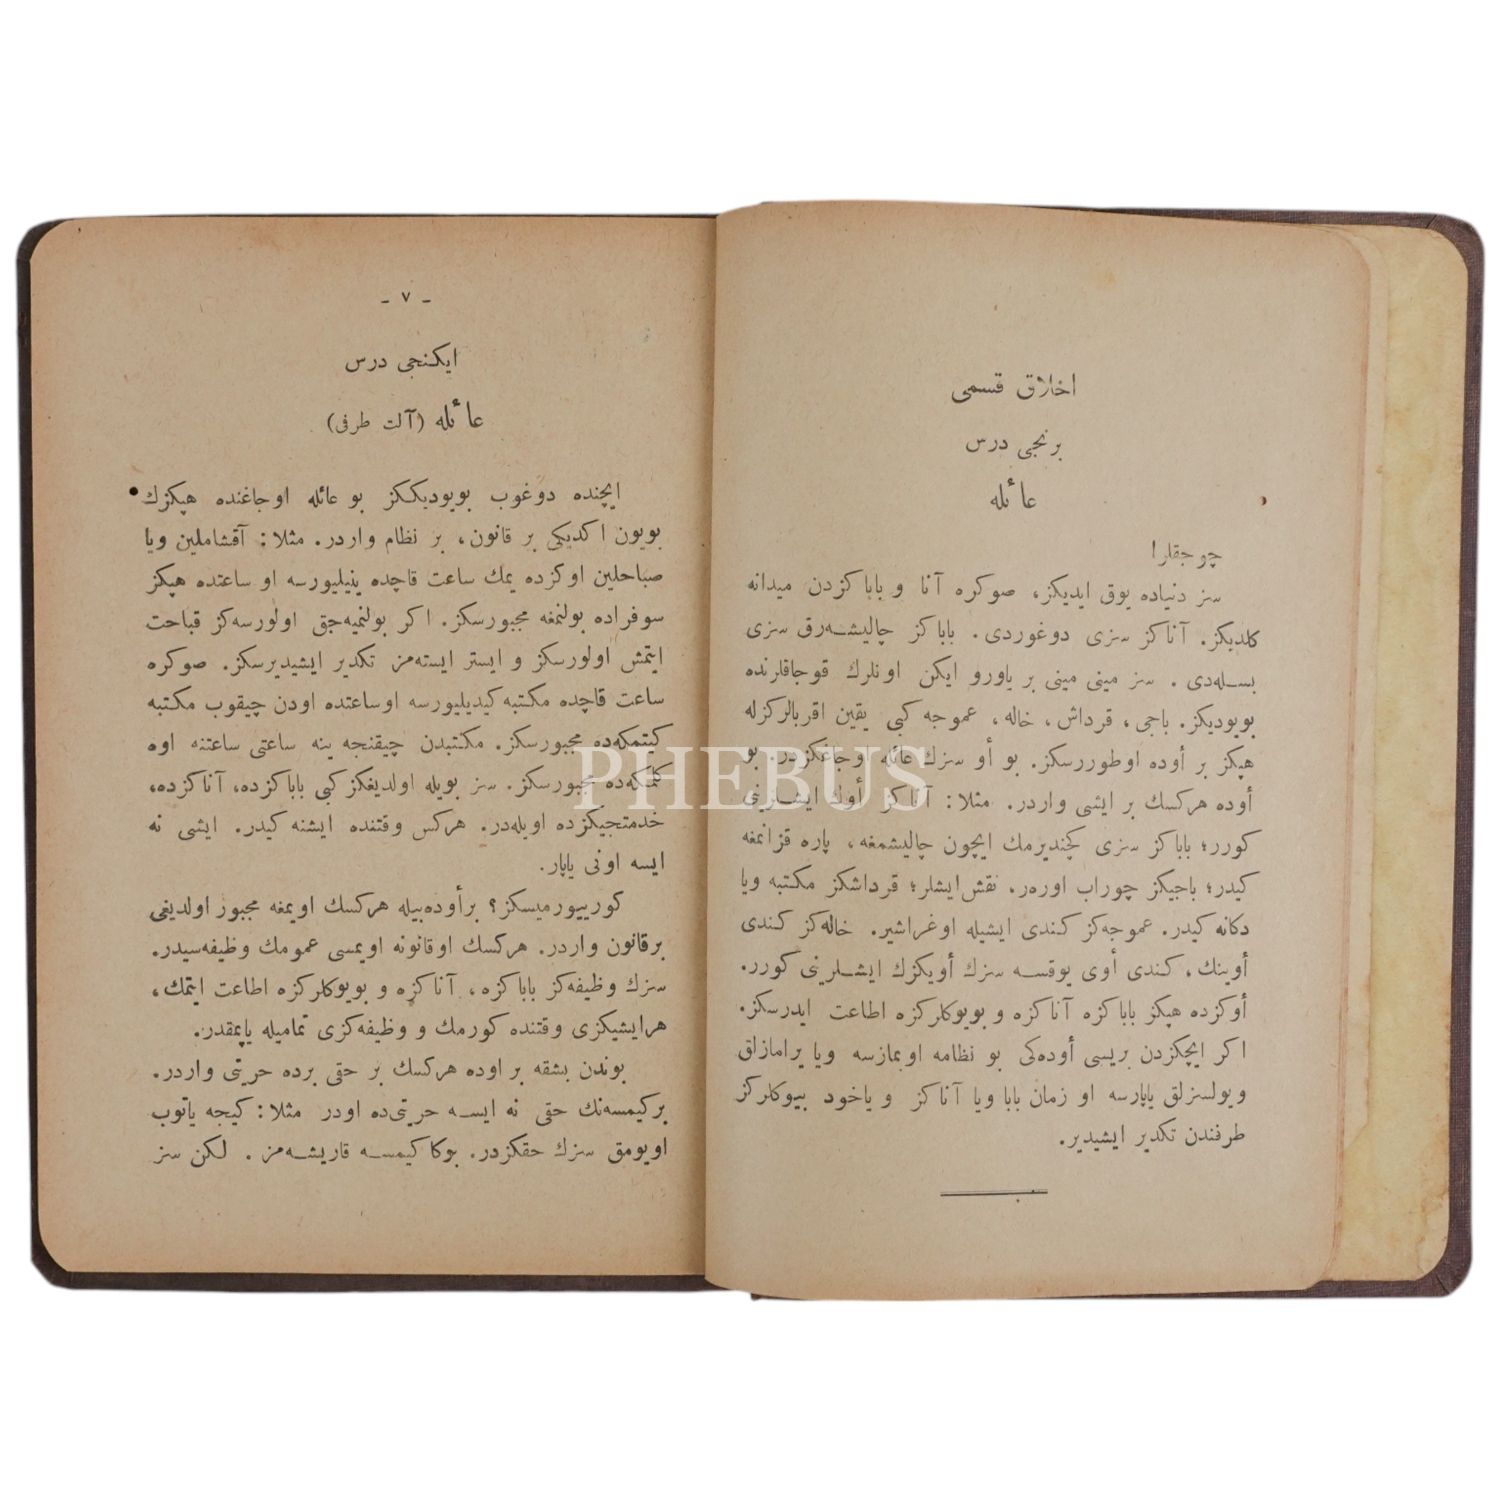 اخلاق قسمی
برنجی درس
عائله
چوجقلر!
سز دنیاده یوق ایدیکز، صوکره آنا و باباکزدن میدانه
کلدیکز. آناکز سزی دوغوردی. باباکز چالیشه‌رق سزی
بسله‌دی. سز مینی مینی بر یاورو ایکن اونلرك قوجاقلرنده
بویودیکز. باجی، قرداش، خاله، عموجه کبی یقین اقربالرکزله
هپکز بر أوده اوطوررسکز. بو أو سزك عائله اوجاغکزدر. بو
أوده هرکسك بر ایشی واردر. مثلا: آناکز أوك ایشلرینی
کورر؛ باباکز سزی کچندیرمك ایچون چالیشمغه، پاره قزانمغه
کیدر؛ باجیکز چوراب اورەر، نقش ایشلر؛ قرداشکز مکتبه ویا
دکانه کیدر. عموجه‌کز کندی ایشیله اوغراشیر. خاله‌کز کندی
أوینك، کندی أوی یوقسه سزك أویکزك ایشلرینی کورر.
أوکزده هپکز باباکزه آناکزه و بویوکلرکزه اطاعت ایدرسکز.
اکر ایچکزدن بریسی أوده‌کی بو نظامه اویمازسه ویا یرامازلق
ویولسزلق یاپارسه او زمان بابا ویا آناکز و یاخود بیوکلرکز
طرفندن تکدیر ایشیدیر.
- ٧ -
ایکنجی درس
عائله (آلت طرفی)
ایچنده دوغوب بویودیککز بو عائله اوجاغنده هپکزك
بویون اکدیکی بر قانون، بر نظام واردر. مثلا: آقشاملین ویا
صباحلین اوکزده یمك ساعت قاچده ینیلیورسه او ساعتده هپکز
سوفراده بولنمغه مجبورسکز. اکر بولنمیه‌جق اولورسه‌کز قباحت
ایتمش اولورسکز و ایستر ایسته‌مز تکدیر ایشیدیرسکز. صوکره
ساعت قاچده مکتبه کیدیلیورسه اوساعتده اودن چیقوب مکتبه
کیتمکه‌ده مجبورسکز. مکتبدن چیقنجه ینه ساعتی ساعتنه اوه
کلمکه‌ده مجبورسکز. سز بویله اولدیغکز کبی باباکزده، آناکزده،
خدمتجیکزده اویله‌در. هرکس وقتنده ایشنه کیدر. ایشی نه
ایسه اونی یاپار.
کورییورمیسکز؟ برأوده‌بیله هرکسك اویمغه مجبور اولدیغی
برقانون واردر. هرکسك اوقانونه اویمسی عمومك وظیفه‌سیدر.
سزك وظیفه‌کز باباکزه، آناکزه و بویوکلرکزه اطاعت ایتمك،
هرایشیکزی وقتنده کورمك و وظیفه‌کزی تمامیله یاپمقدر.
بوندن بشقه بر اوده هرکسك بر حقی برده حریتی واردر.
برکیمسه‌نك حقی نه ایسه حریتی‌ده اودر مثلا: کیجه یاتوب
اویومق سزك حقکزدر. بوکا کیمسه قاریشه‌مز. لکن سز
PHEBUS